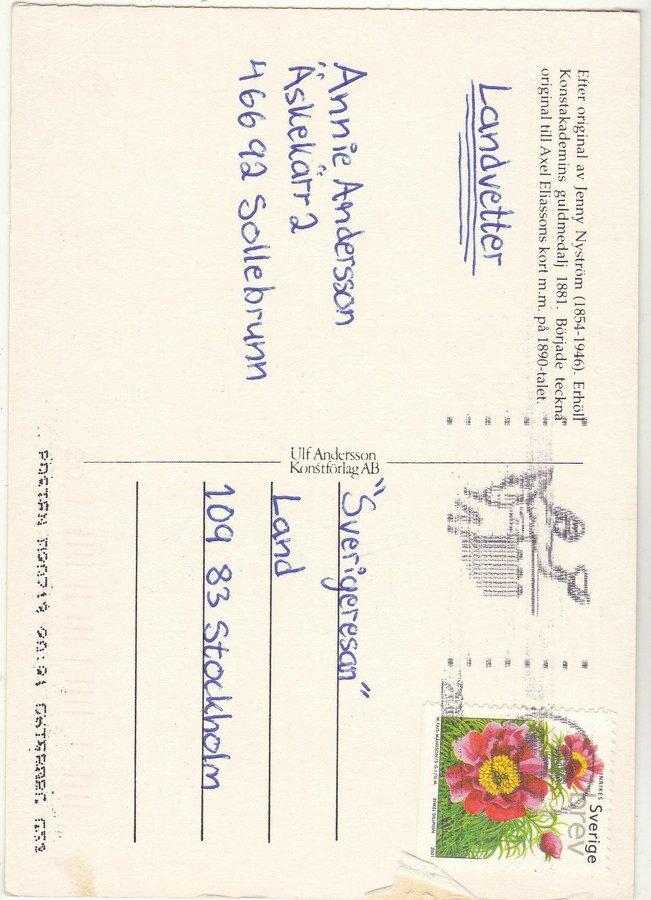 Efter original av Jenny Nyström (1854-1946). Erhöll
Konstakademins guldmedalj 1881. Började teckna
original till Axel Eliassons kort m.m. på 1890-talet.
Landvetter
Annie Andersson
Äskekärr 2
466 92 Sollebrunn
Ulf Andersson
Konstförlag AB
"Sverigeresan"
Land
109 83 Stockholm
Sverige
brev
INRIKES
2001